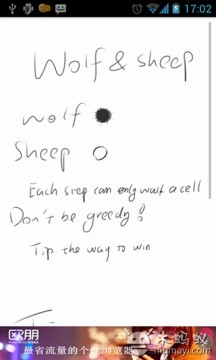 17:02
Wolf & sheep
wolf
Sheep
Each step can only walk a cell
Don't be greedy!!
Tip the way to win
欧朋
最省流量的个性浏览器
木蚂蚁
mumayi.com